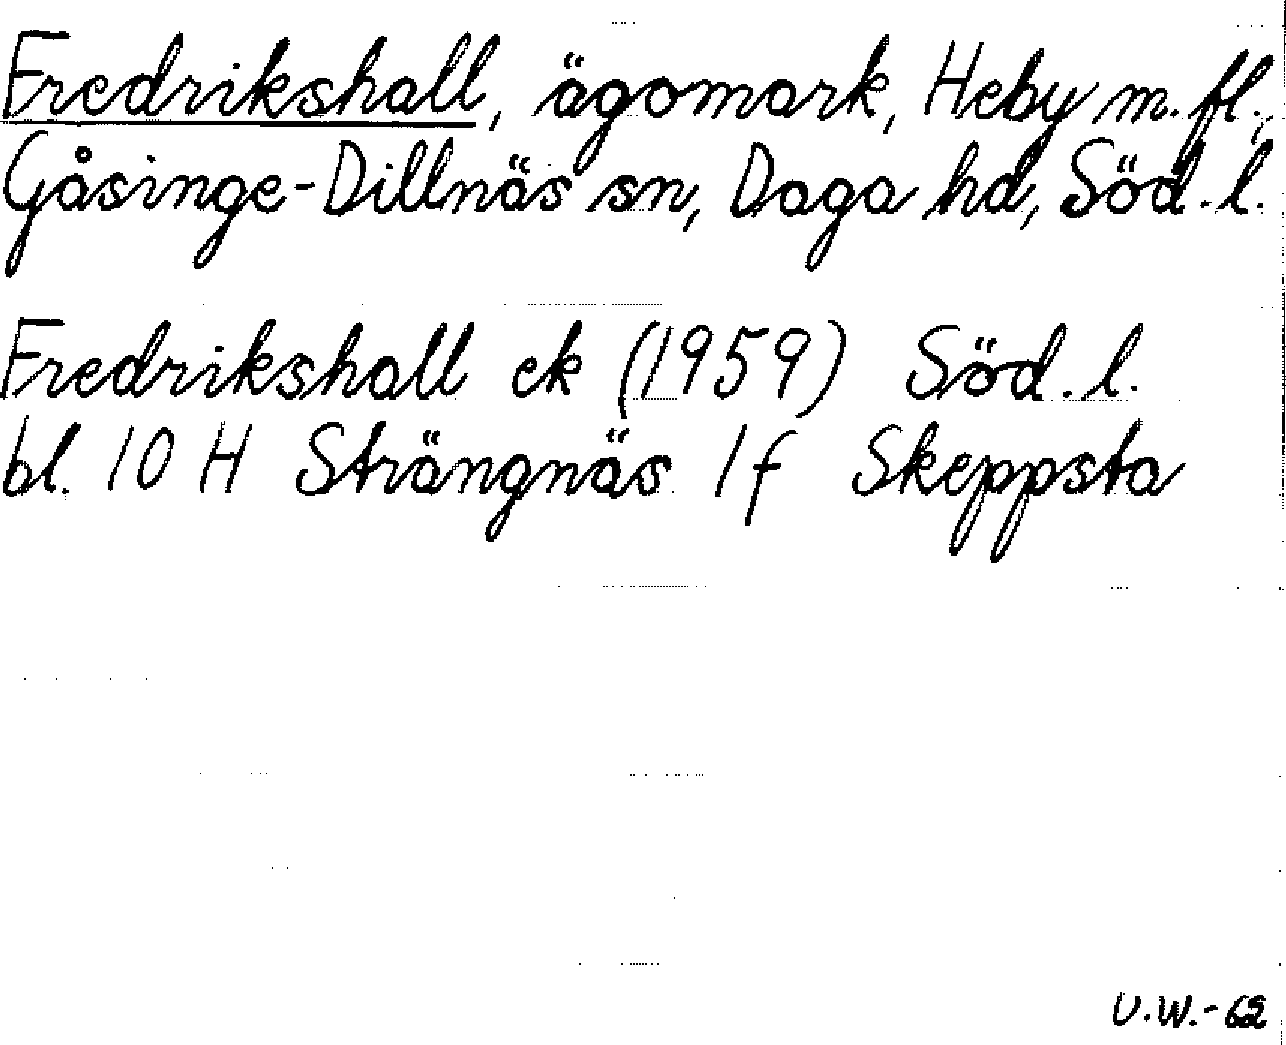 Fredrikshall, ägomark, Heby m.fl.,
Gåsinge-Dillnäs sn, Daga hd, Söd.l.
Fredrikshall ek (1959) Söd.l.
bl. 10 H Strängnäs 1f Skeppsta
U.W.-62